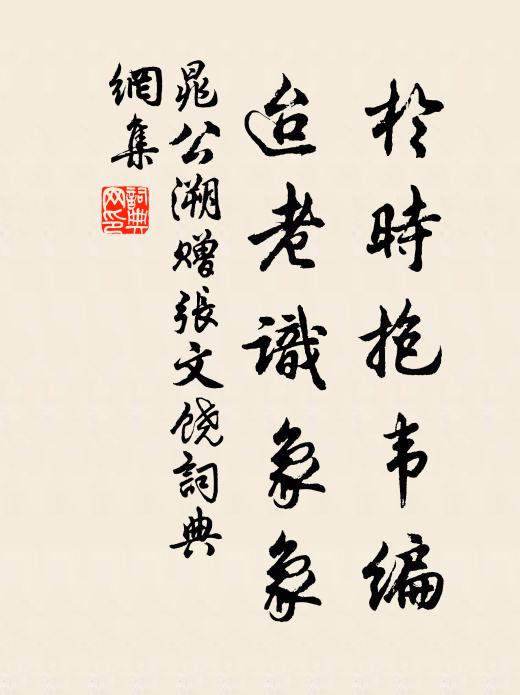 於時抱韦编
迨老識象象
晁公溯赠張文饶詞典
網集
詞典
网印